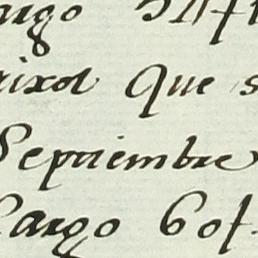 argo
rixol Que s
Septiembre
Cargo 60f.